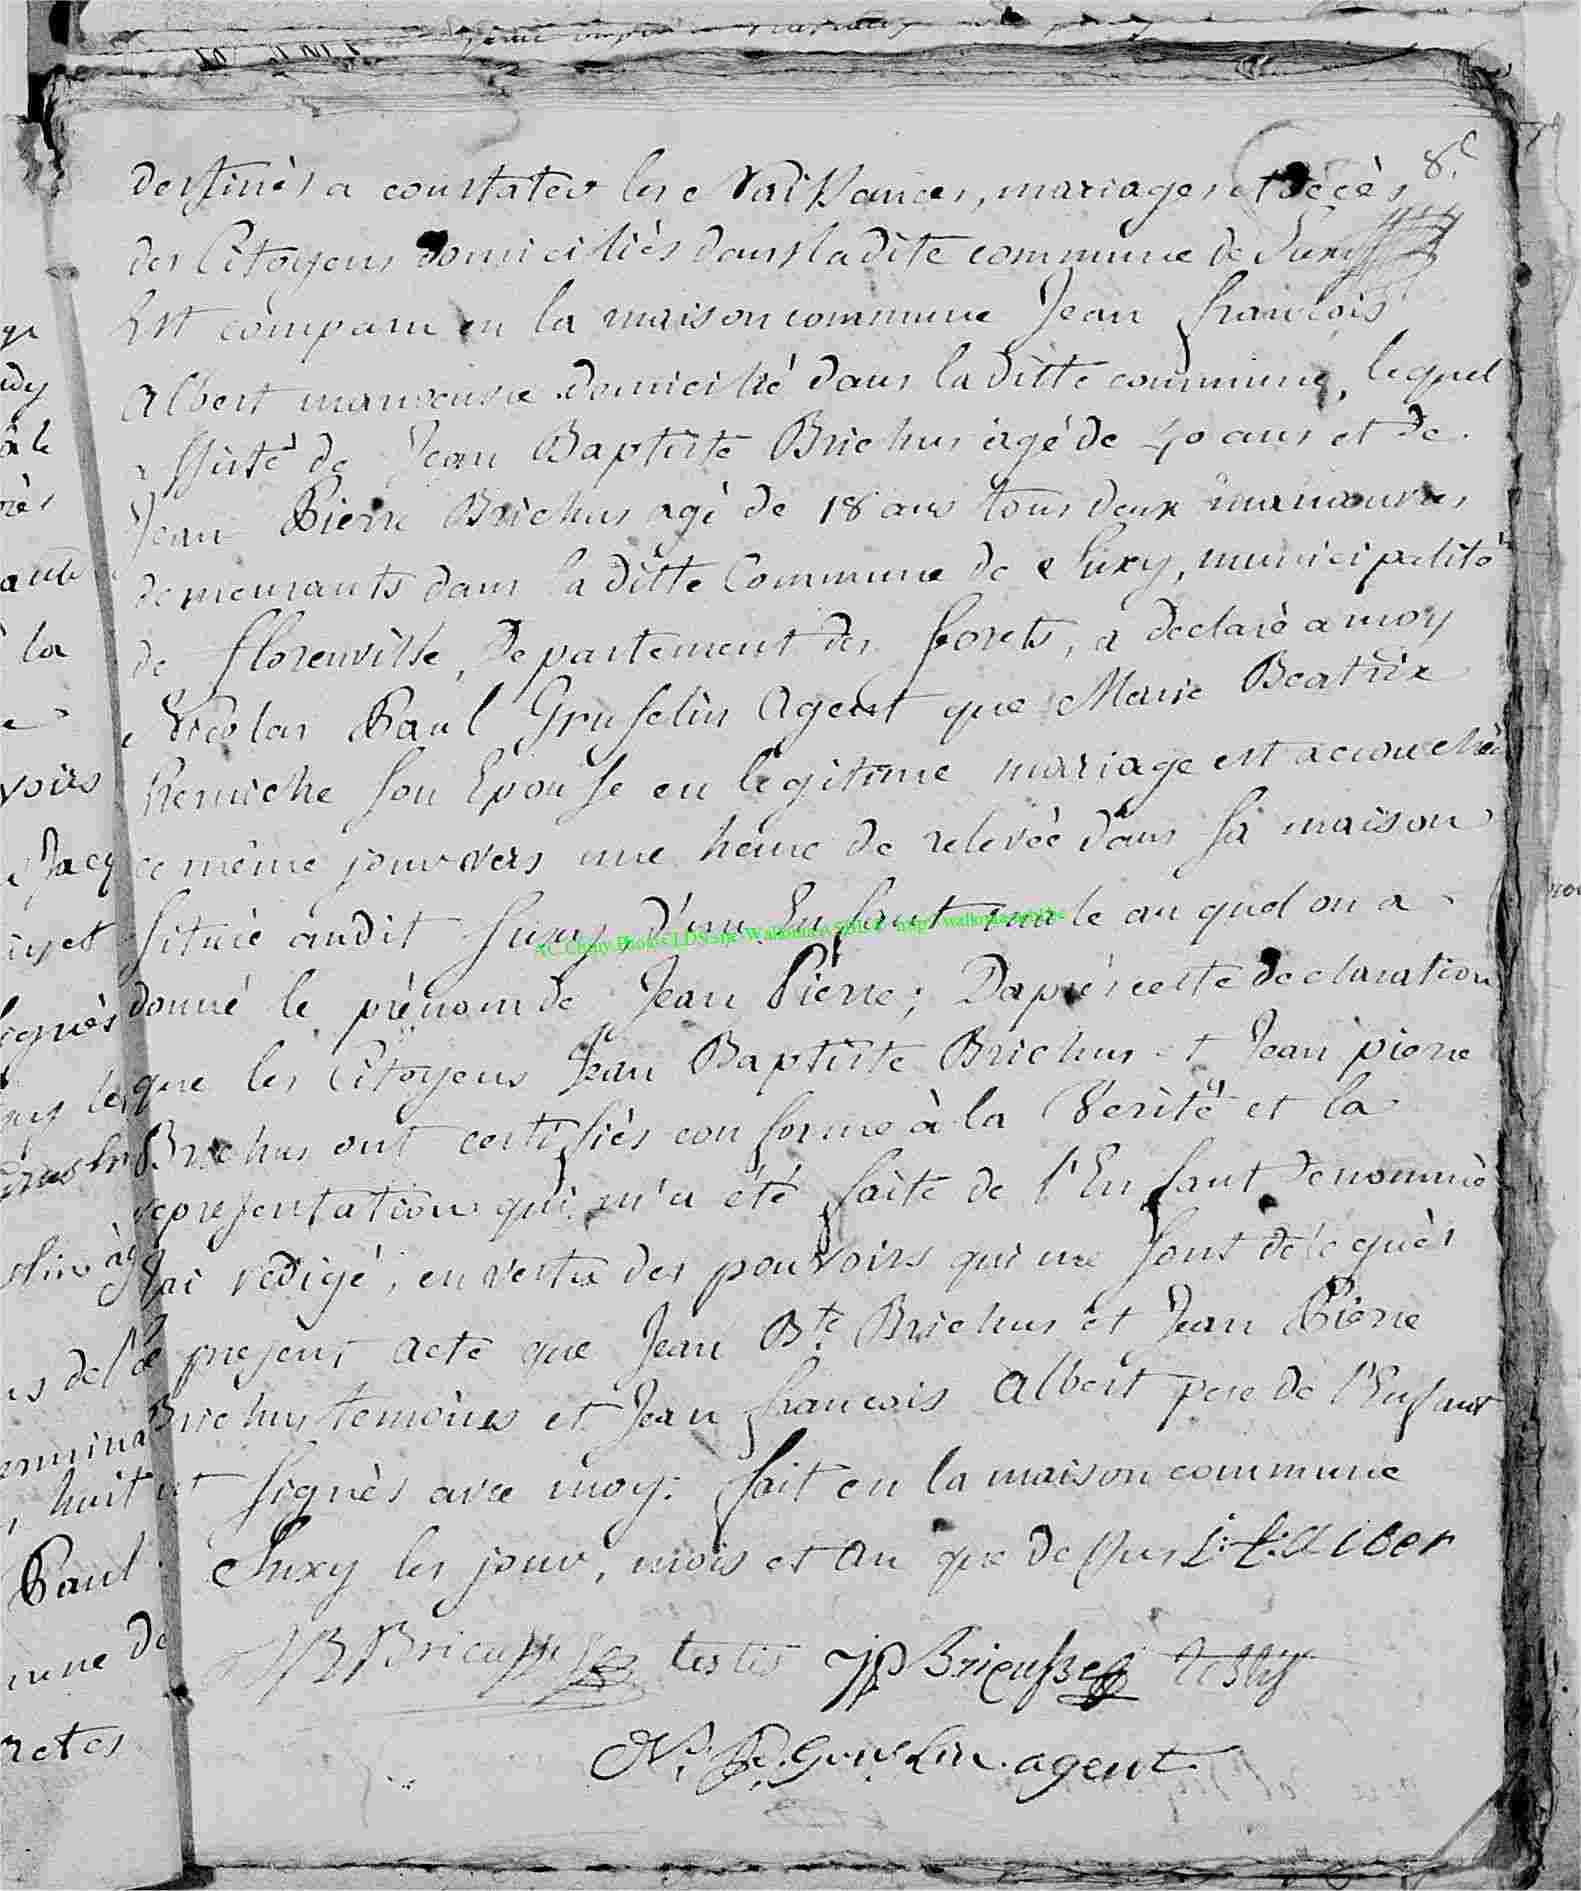 8.e
destinés a constater les Naissances, mariages et décès
des Citoyens domiciliés dans la dite commune de Suxy
Est comparu en la maison commune Jean françois
Albert manoeuvre domicilié dans la ditte commune, lequel
assisté de Jean Baptiste Brichus agé de 40 ans et de
Jean Pierre Brichus agé de 18 ans tous deux manoeuvres
demeurants dans la ditte Commune de Suxy, municipalité
de florenville, Departement des forets, a declaré a moy
Nicolas Paul Gruselin Agent que Marie Beatrix
herniche son Epouse en legitime mariage est accouchée
ce même jour vers une heure de relevée dans sa maison
située audit Suxy, d'un Enfant male auquel on a
donné le prénom de Jean Pierre; Daprés cette declaration
que les Citoyens Jean Baptiste Brichus et Jean pierre
Brichus ont certifiés conforme à la Verité et la
representation qui m'a été faite de l'Enfant denommé
J'ai redigé, en vertu des pouvoirs qui me sont délégués
le present acte que Jean B.te Brichus et Jean Pierre
Brichus temoins et Jean francois Albert pere de l'Enfant
ont signés avec moy: fait en la maison commune
Suxy les jour, mois et an que dessus J: f: Alber
JB Bricusse testis JP Bricusse testis
N. P. Gruslin agent